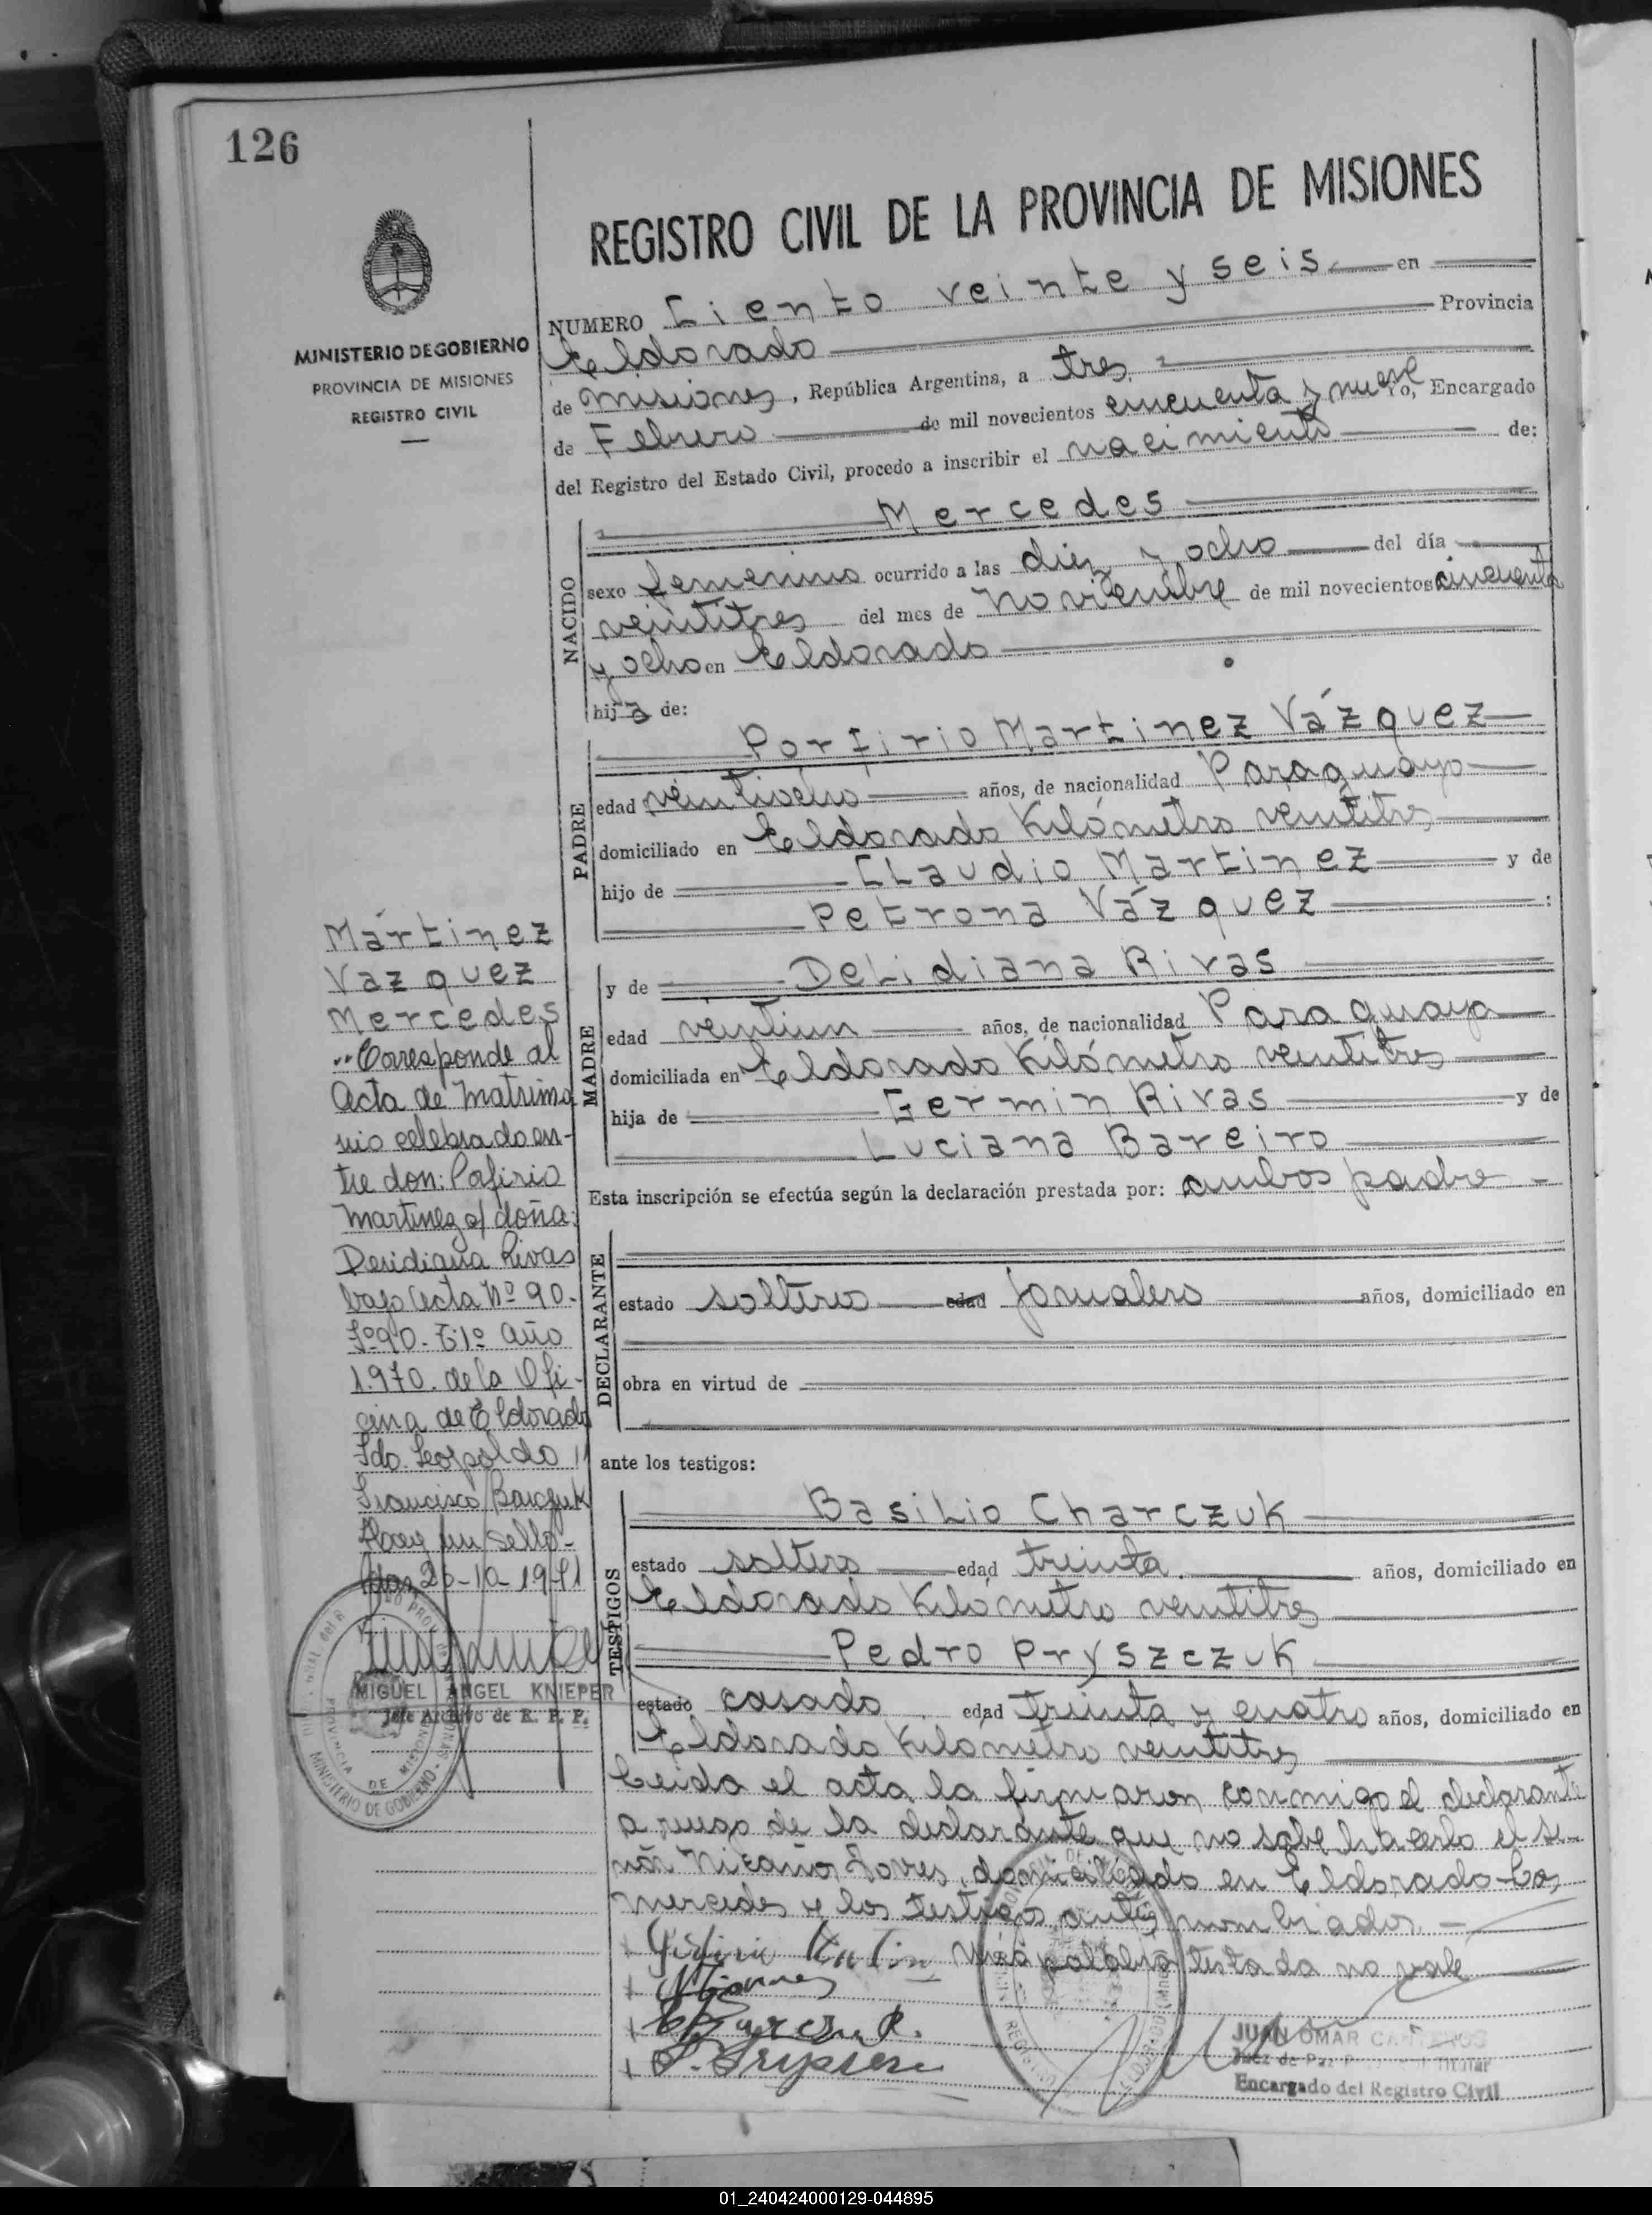 126
REGISTRO CIVIL DE LA PROVINCIA DE MISIONES
MINISTERIO DE GOBIERNO
PROVINCIA DE MISIONES
REGISTRO CIVIL
NUMERO Ciento veinte y seis en
Eldorado Provincia
de Misiones, República Argentina, a tres
de Febrero de mil novecientos cincuenta y nueve Yo, Encargado
del Registro del Estado Civil, procedo a inscribir el nacimiento de:
NACIDO
Mercedes
sexo femenino ocurrido a las diez y ocho del día
veintitres del mes de Noviembre de mil novecientos cincuenta
y ocho en Eldorado
hija de:
PADRE
Porfirio Martinez Vázquez
edad veintiocho años, de nacionalidad Paraguayo
domiciliado en Eldorado Kilómetro veintitres
hijo de Claudio Martinez y de
Petrona Vázquez :
MADRE
y de Delidiana Rivas
edad veintiun años, de nacionalidad Paraguaya
domiciliada en Eldorado Kilómetro veintitres
hija de Germin Rivas y de
Luciana Bareiro
Esta inscripción se efectúa según la declaración prestada por: ambos padre
DECLARANTE
estado soltero edad jornalero años, domiciliado en
obra en virtud de
ante los testigos:
TESTIGOS
Basilio Charczuk
estado soltero edad treinta años, domiciliado en
Eldorado Kilómetro veintitres
Pedro Pryszczuk
estado casado edad treinta y cuatro años, domiciliado en
Eldorado Kilómetro veintitres
Leida el acta la firmaron conmigo el declarante
a ruego de la declarante que no sabe hacerlo el se-
ñor domiciliado en Eldorado
y los testigos antes nombrados.
palabra testada no vale
Mártinez
Vazquez
Mercedes
"Corresponde al
Acta de Matrimo
nio celebrado en-
tre don: Pofirio
Martinez c/ doña:
Desidiana Rivas
bajo Acta Nº 90.
Fº 90. Tº 1º Año
1.970. de la Ofi-
cina de Eldorado
Fdo. Leopoldo
Francisco
Hay un sello-
MIGUEL ANGEL KNIEPER
Jefe Archivo de R. P. P.
MINISTERIO DE GOBIERNO
PROVINCIA DE MISIONES
JUAN OMAR
Juez de Paz Titular
Encargado del Registro Civil
01_240424000129-044895